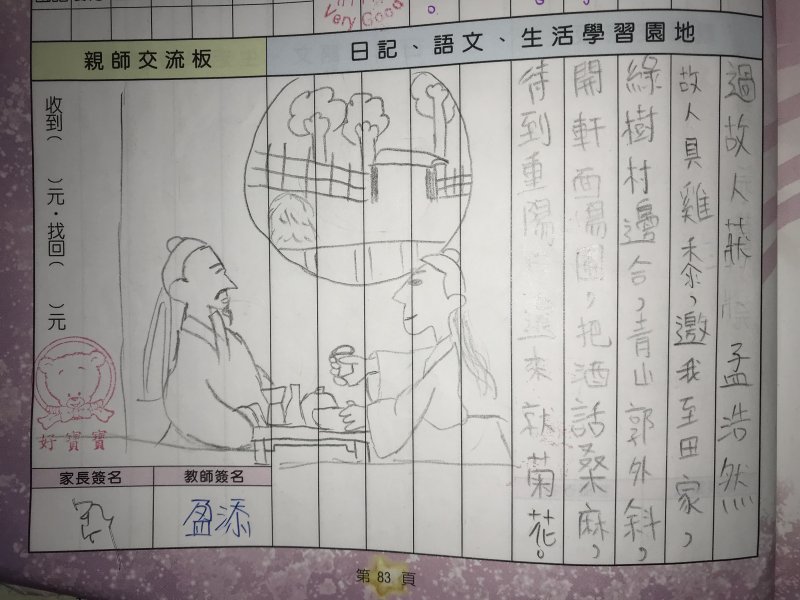 Very Good
親師交流板
日記、語文、生活學習園地
過故人莊 孟浩然
故人具雞黍,邀我至田家,
綠樹村邊合,青山郭外斜,
開軒面場圃,把酒話桑麻,
待到重陽 還來就菊花。
收到( )元.找回( )元
好寶寶
家長簽名
教師簽名
盈添
第 83 頁